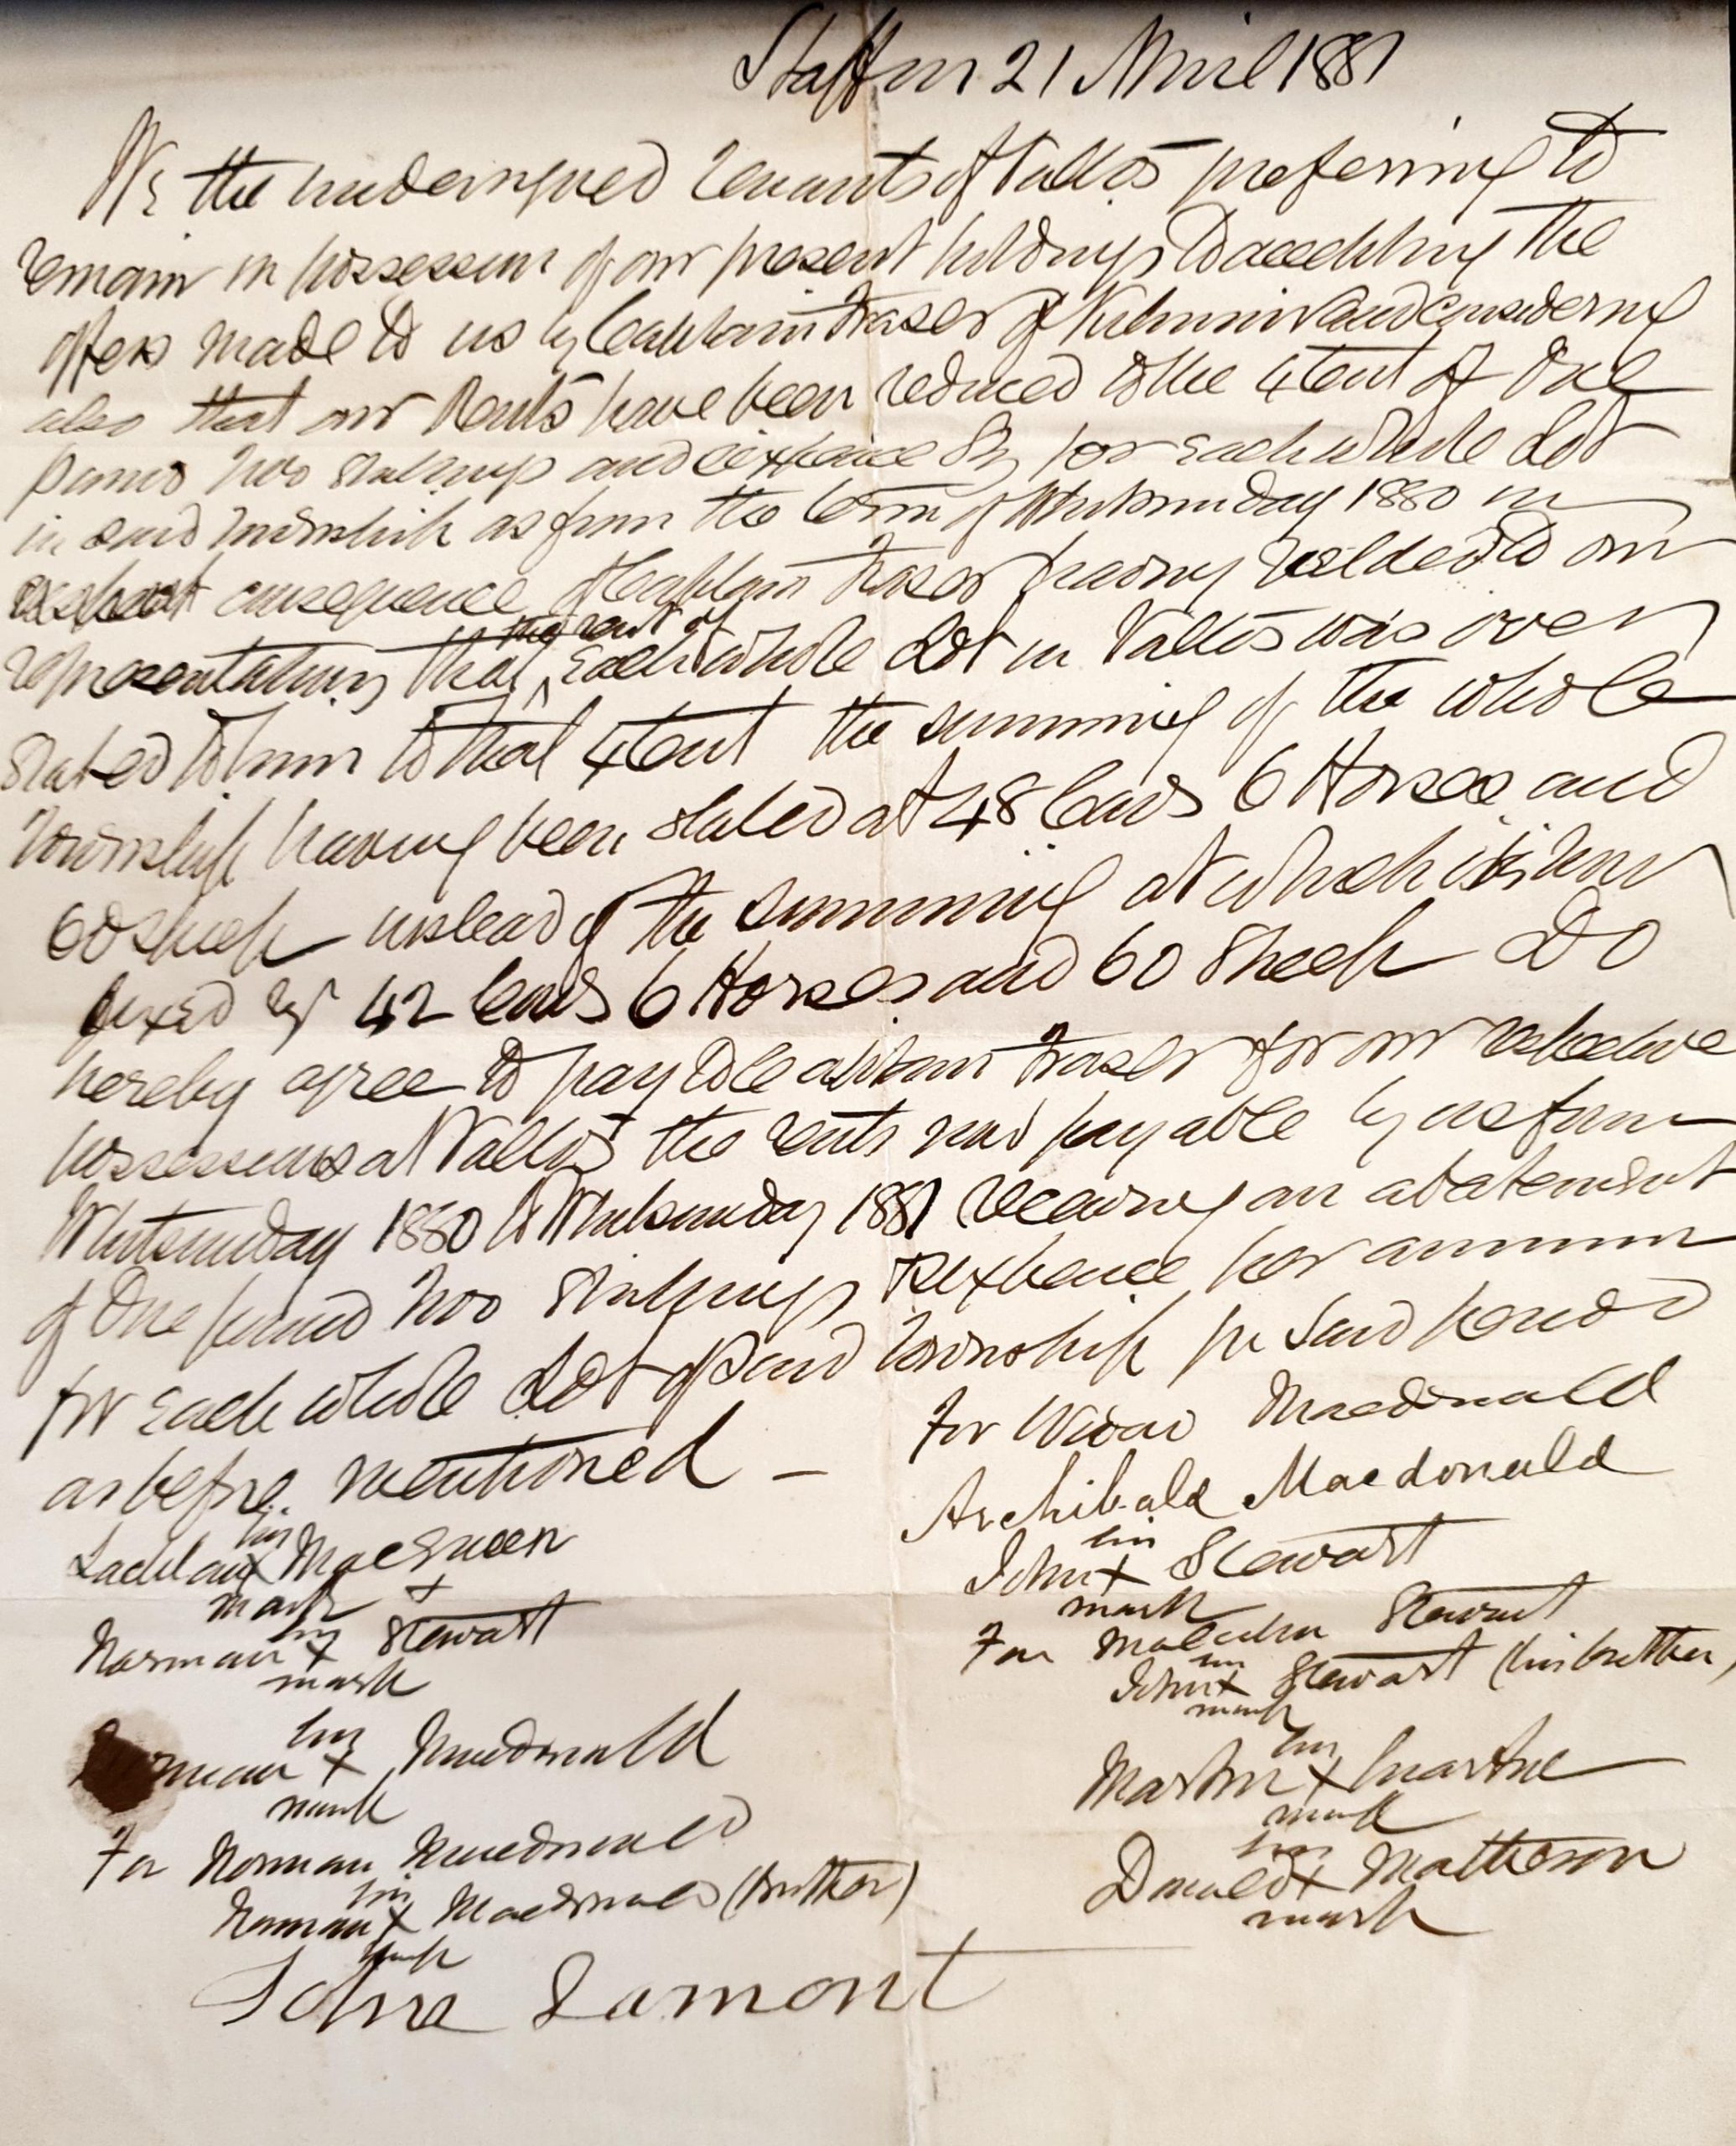 Staffin 21 April 1881
We the undersigned tenants of Valtos preferring to
remain in possession of our present holdings to accepting the
offers made to us by Captain Fraser of Kilmuir and considering
also that our Rents have been reduced to the extent of One
pound two shillings and sixpence Stg for each whole Lot
in said township as from the term of Whitsunday 1880 in
consequence of Captain Fraser having yielded to our
representations that the rent of each whole Lot in Valtos was over
stated to him to that extent the summing of the whole
Township having been stated at 48 Cows 6 Horses and
60 sheep instead of the summing at which it is now
fixed by 42 Cows 6 Horses and 60 Sheep Do
hereby agree to pay to Captain Fraser for our respective
possessions at Valtos the rents now payable by us from
Whitsunday 1880 to Whitsunday 1881 receiving an abatement
of One pound two Shillings Sixpence per annum
for each whole Lot of said township for said period
as before mentioned —
Lachlan his x mark MacQueen
Norman his x mark Stewart
Norman his x mark Macdonald
For Norman Macdonald
Norman his x mark Macdonald (brother)
John Lamont
For Widow Macdonald
Archibald Macdonald
John his x mark Stewart
For Malcolm Stewart
John his x mark Stewart (his brother)
Martin his x mark Martin
Donald his x mark Matheson